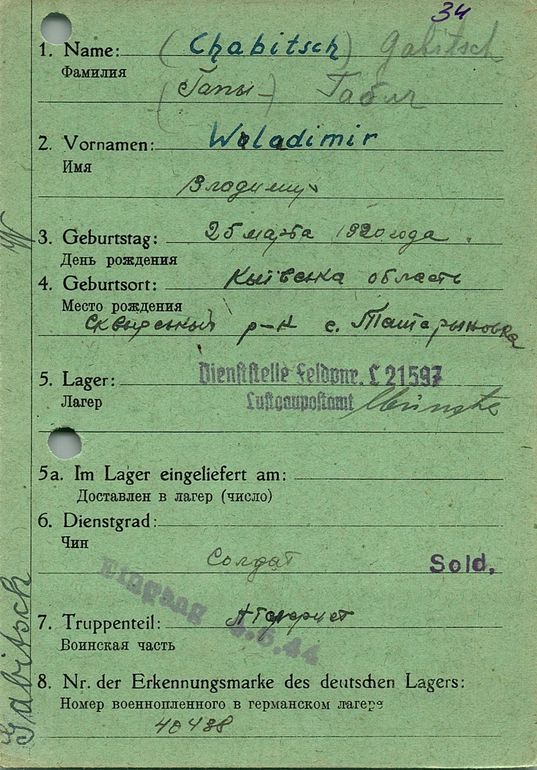 34
1. Name: (Chabitsch) Gabitsch
Фамилия
2. Vornamen: Woladimir
Имя
Владимир
3. Geburtstag: 25 марта 1920 года.
День рождения
4. Geburtsort: Кыівська область
Место рождения
р-н с.
5. Lager: Dienststelle Feldpnr. L 21597
Лагер Luftgaupostamt
5a. Im Lager eingeliefert am:
Доставлен в лагер (число)
6. Dienstgrad:
Чин
Солдат Sold.
Eingang .5.44
7. Truppenteil:
Воинская часть
8. Nr. der Erkennungsmarke des deutschen Lagers:
Номер военнопленного в германском лагере
40488
Gabitsch